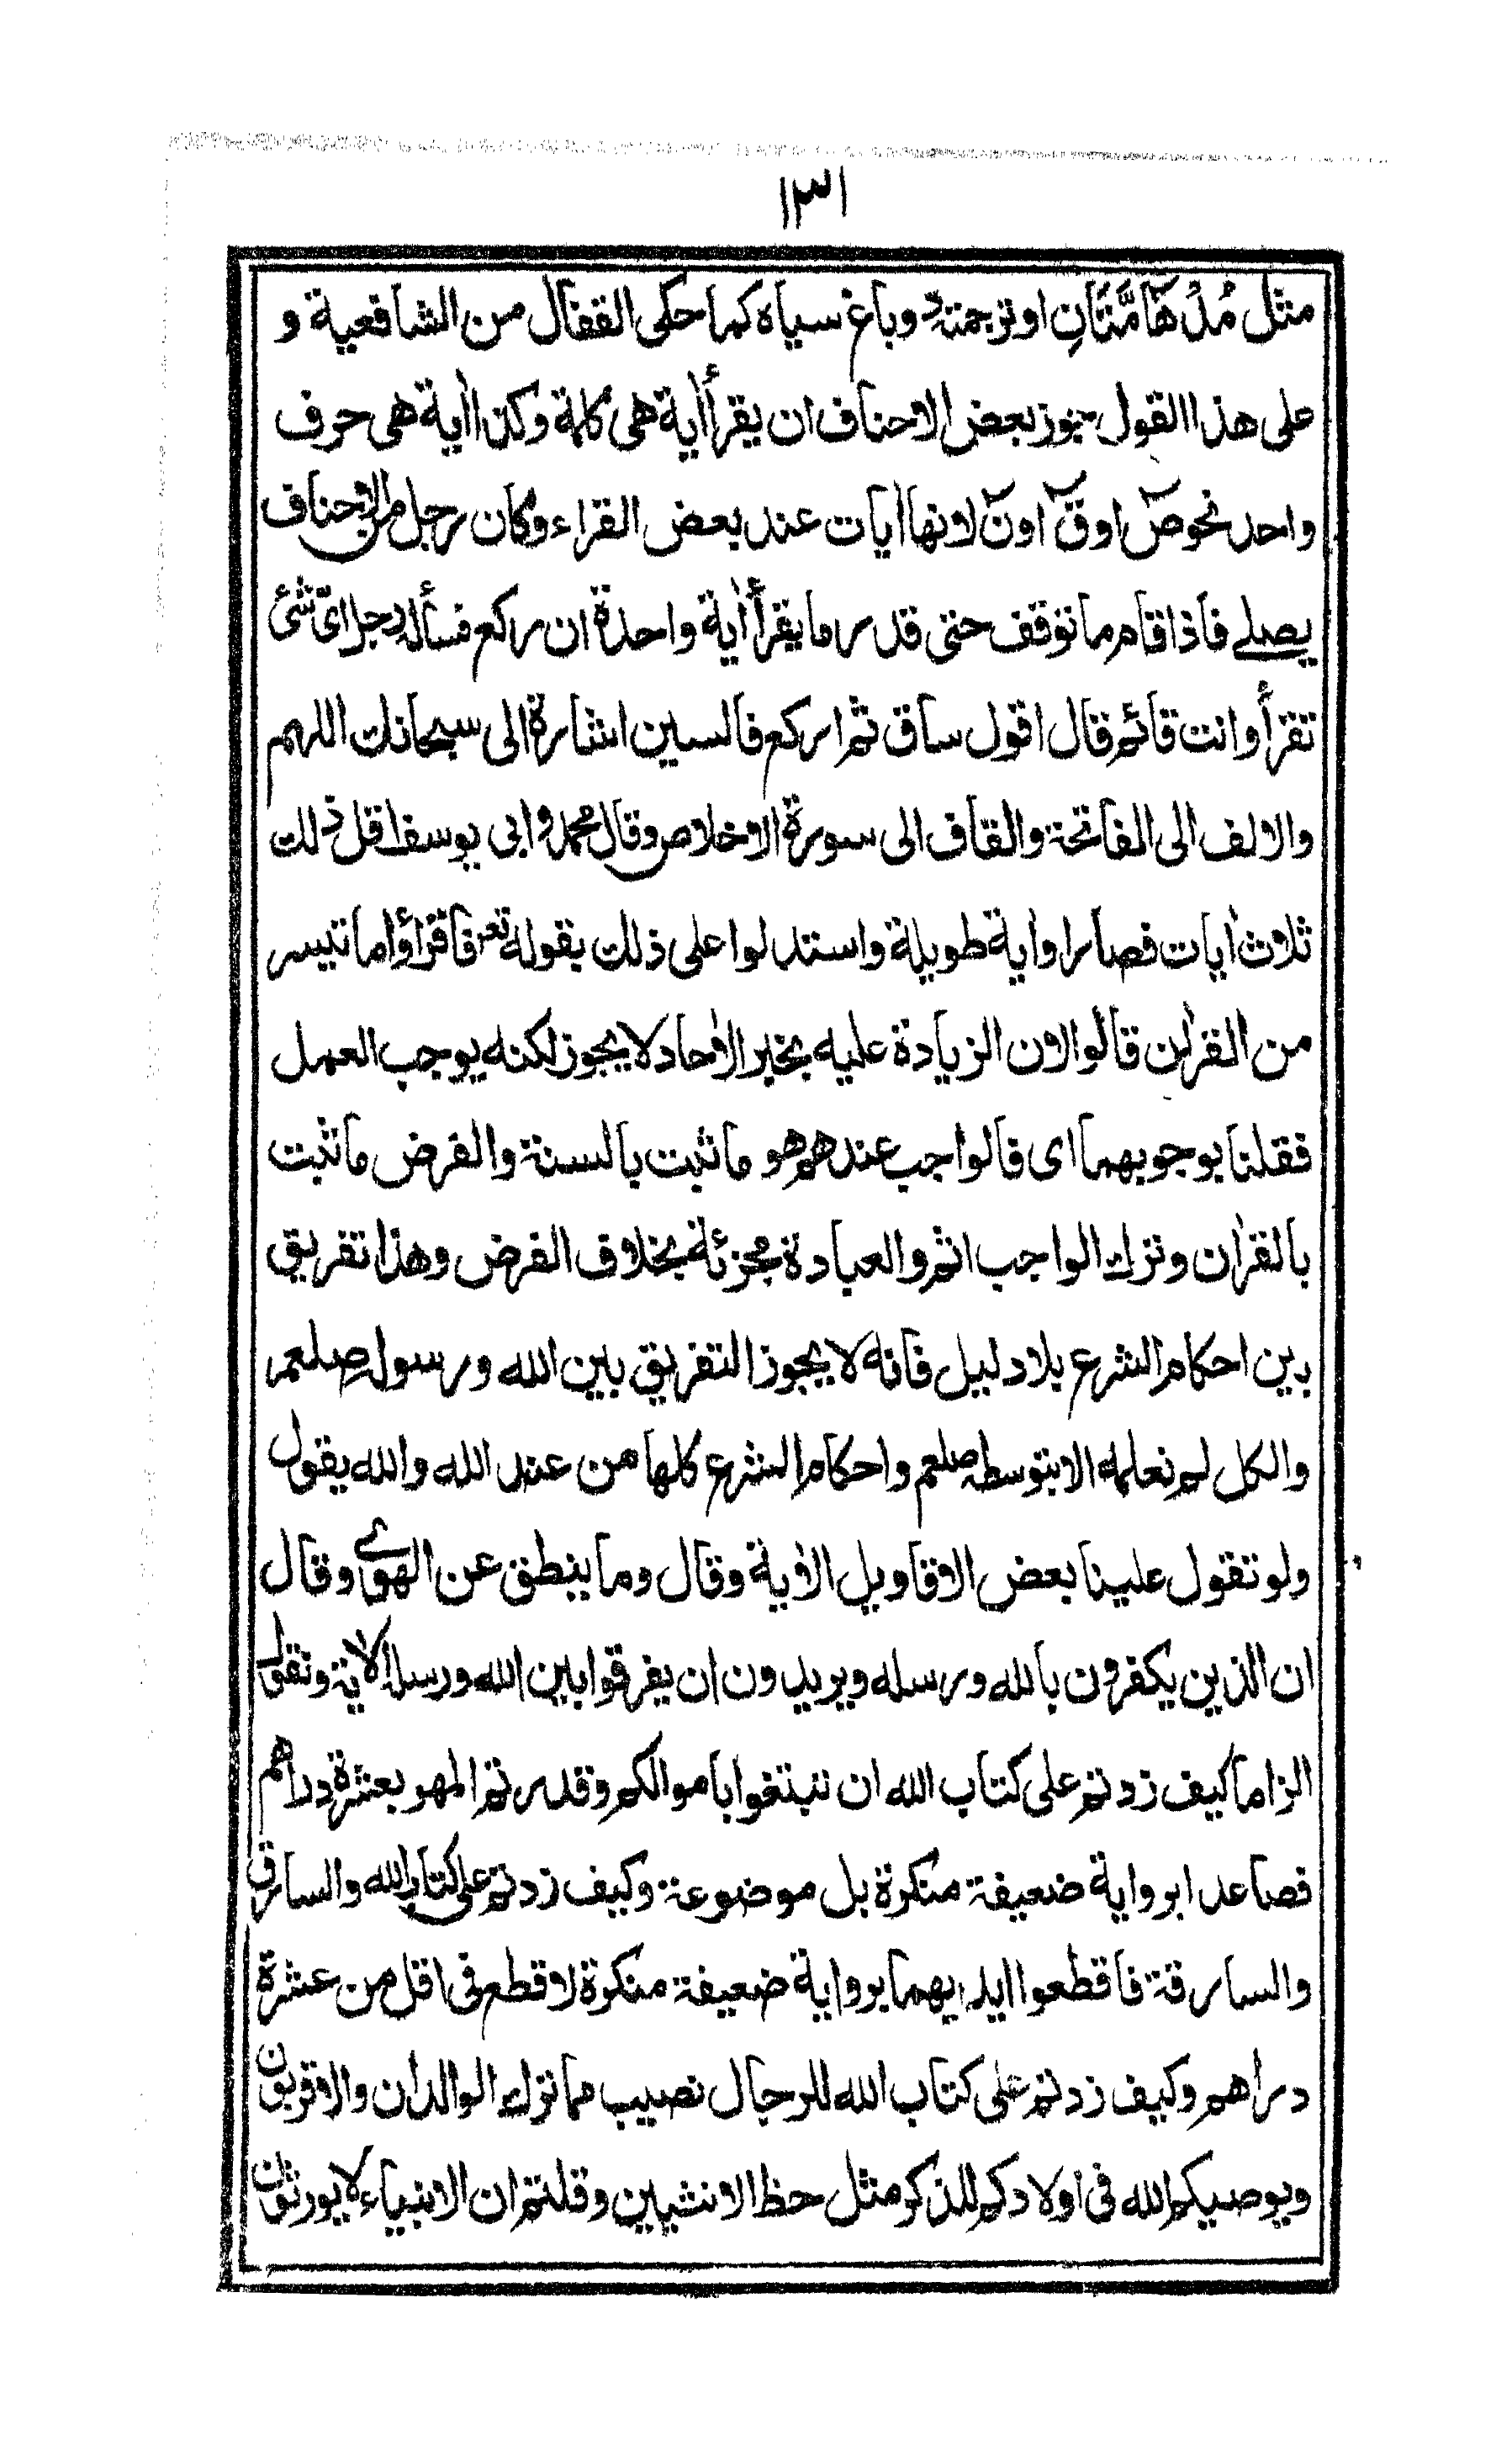 ١٣١
مثل مُدْهَآمَّتَانِ اوترجمتہ دوباغ سياه كما حكى القفال من الشافعية و
على هذا القول يجوز بعض الاحناف ان يقرأ اٰية هى كلمة وكذا اٰية هى حرف
واحد نحو صٓ او قٓ او نٓ لانها اٰيات عند بعض القراء وكان رجل من الاحناف
يصلے فاذا قام ما توقف حتى قدر ما يقرأ اٰية واحدة ان ركع فسأله رجل اىّ شئ
تقرأ وانت قائم قال اقول ساق ثم اركع فالسين اشارة الى سبحانك اللهم
والالف الى الفاتحة والقاف الى سورة الاخلاص وقال محمد و ابى يوسف اقل ذلك
ثلاث اٰيات قصار او اٰية طويلة واستدلوا على ذلك بقوله تعـ فاقرأوا ما تيسر
من القراٰن قالوا لان الزيادة عليه بخبر الاٰحاد لا يجوز لكنه يوجب العمل
فقلنا بوجوبهما اى فالواجب عندهم هو ما ثبت بالسنة والفرض ما ثبت
بالقراٰن وترك الواجب اثم والعبادة مجزئة بخلاف الفرض وهذا تفريق
بين احكام الشرع بلا دليل فانه لا يجوز التفريق بين الله ورسوله صلعم
والكل لم نعلمه الا بتوسطه صلعم واحكام الشرع كلها من عند الله والله يقول
ولو تقول علينا بعض الاقاويل الاٰية وقال وما ينطق عن الهوےٰ وقال
ان الذين يكفرون بالله ورسله ويريدون ان يفرقوا بين الله ورسله الاٰية ونقول
الزاما كيف زدتم على كتاب الله ان تبتغوا باموالكم وقدرتم المهر بعشرة دراهم
فصاعدا برواية ضعيفة منكرة بل موضوعة وكيف زدتم على كتاب الله والسارق
والسارقة فاقطعوا ايديهما بروايا‌ة ضعيفة منكرة لا قطع فى اقل من عشرة
دراهم وكيف زدتم على كتاب الله للرجال نصيب مما ترك الوالدان والاقربون
ويوصيكم الله فى اولادكم للذكر مثل حظ الانثيين وقلتم ان الانبياء لا يورثون